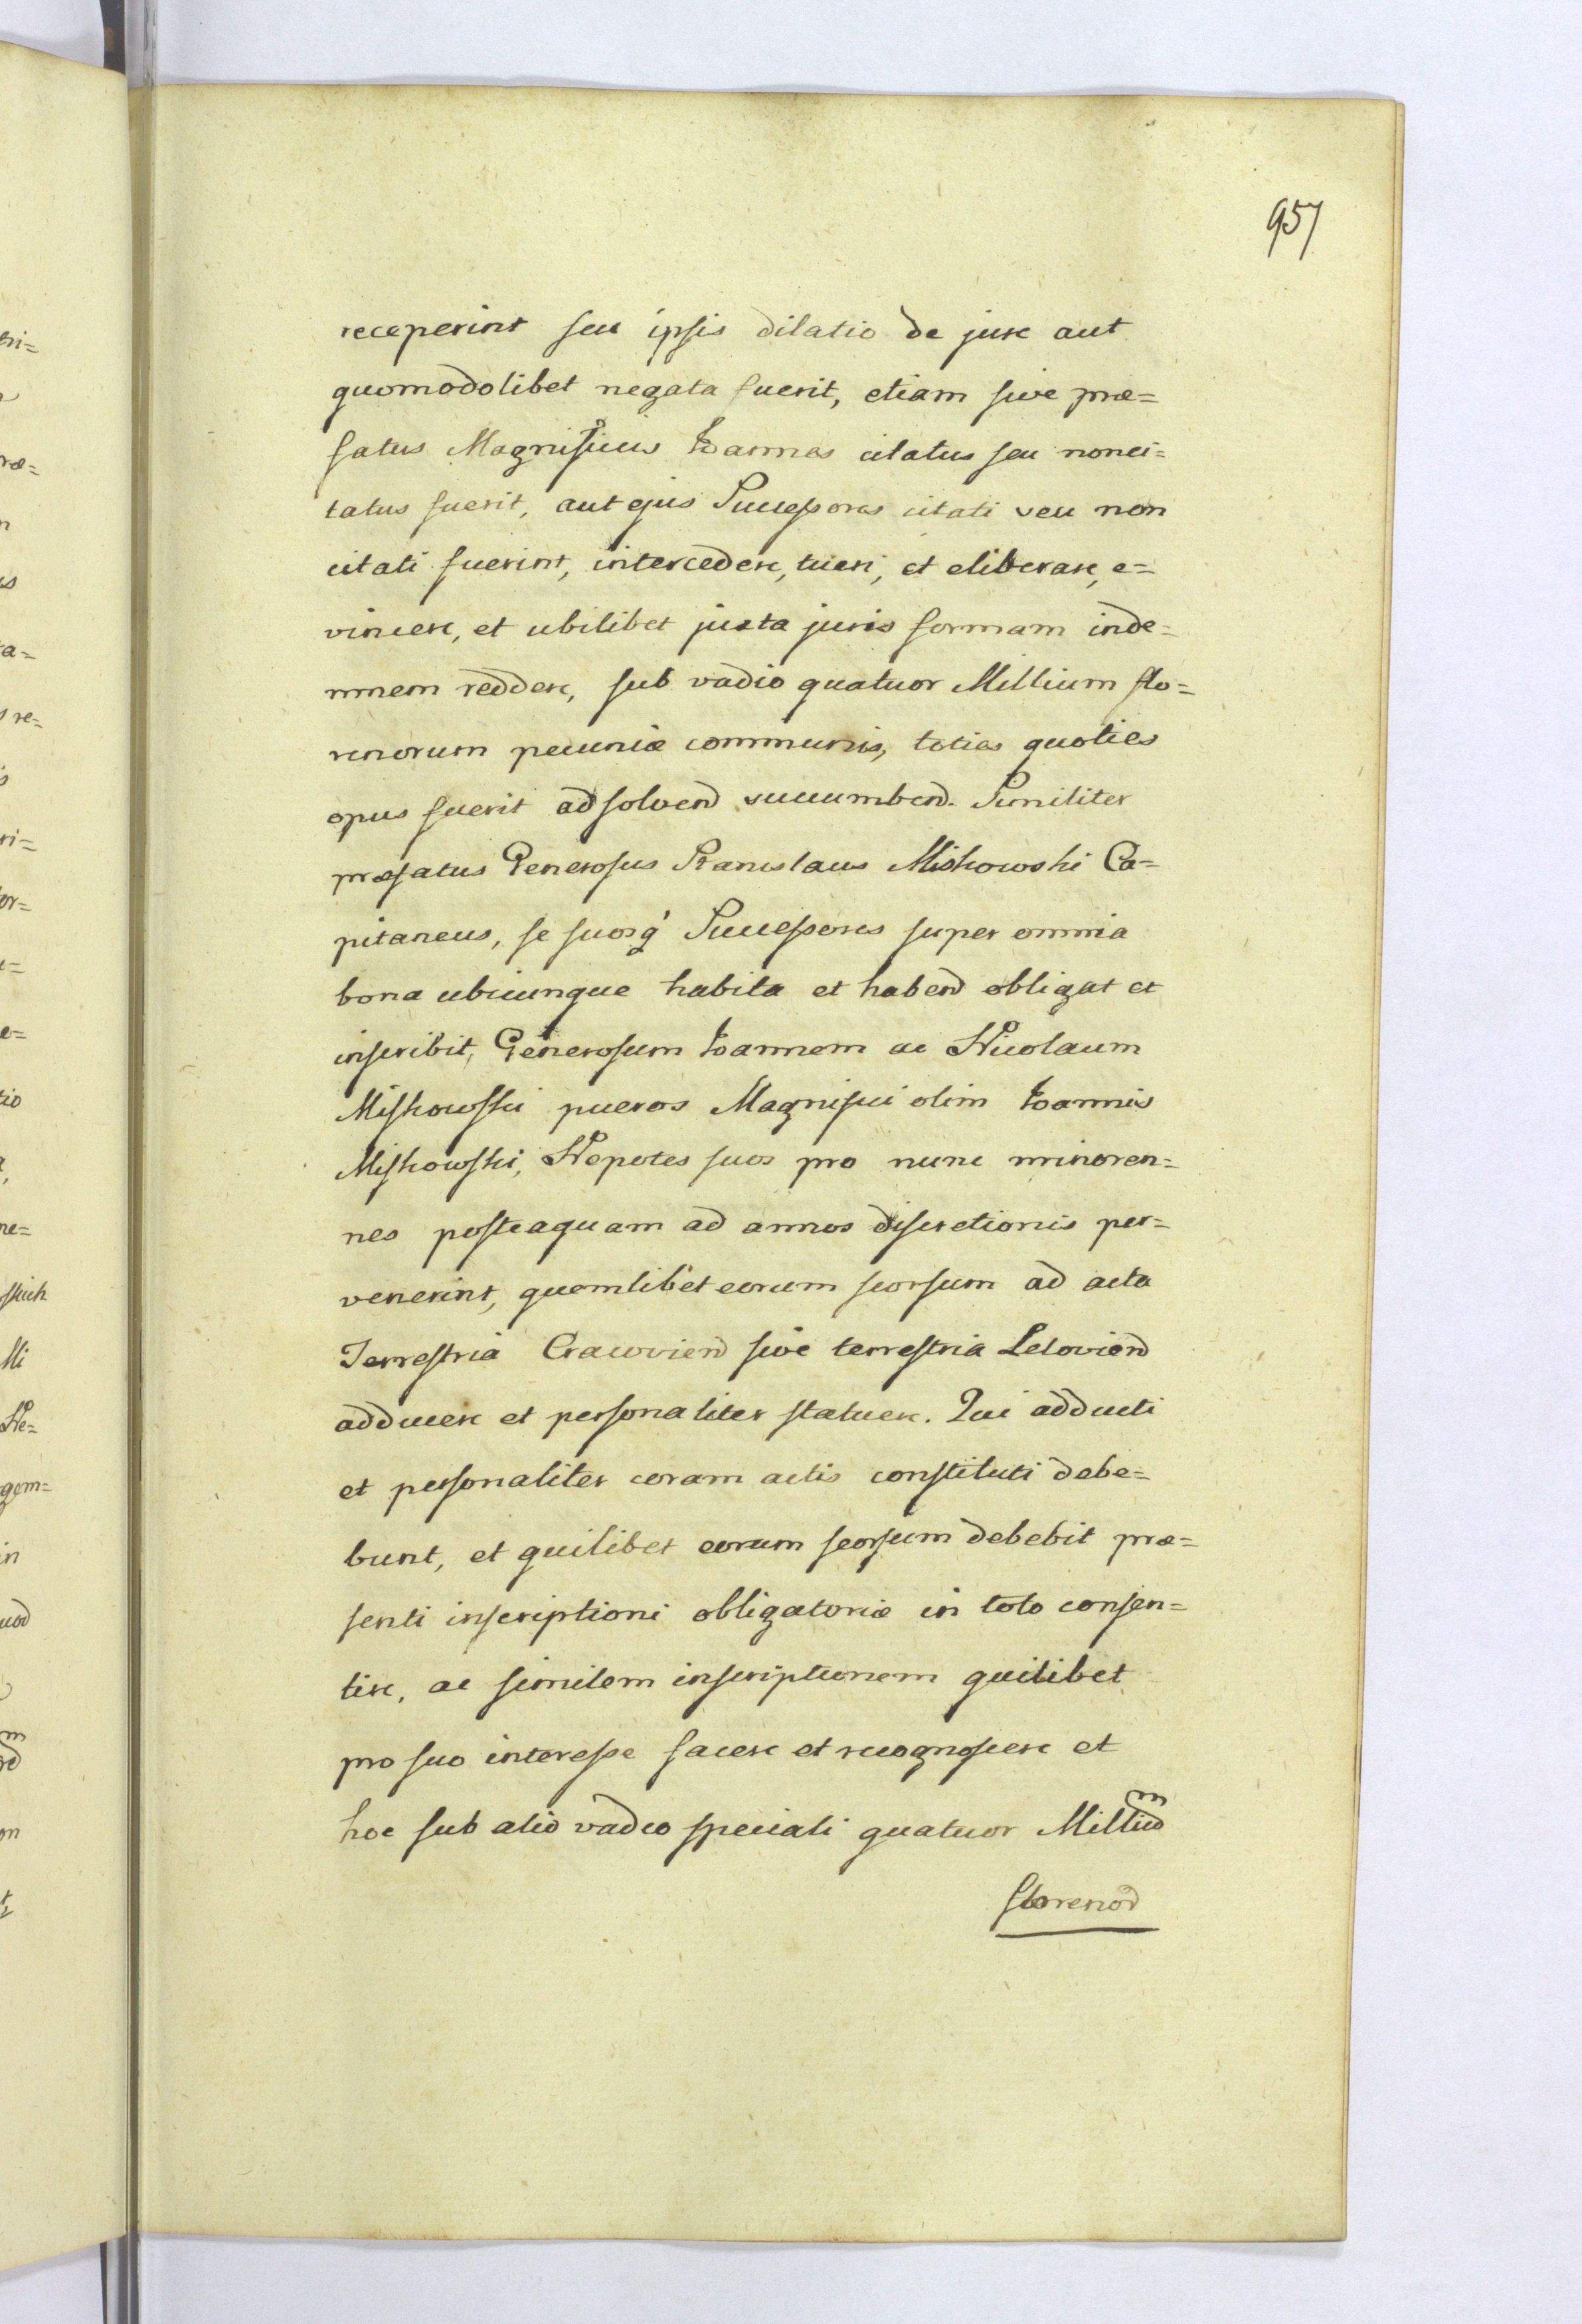 957
receperint seu ipsis dilatio de jure aut
quomodolibet negata fuerit, etiam sive præ=
fatus Magnificus Ioannes citatus seu nonci=
tatus fuerit, aut ejus Successores citati seu non
citati fuerint, intercedere, tueri, et eliberare, e=
vincere, et ubilibet juxta juris formam inde=
mnem reddere, sub vadio quatuor Millium flo=
renorum pecuniæ communis, toties quoties
opus fuerit ad solvend succumbend. Similiter
præfatus Generosus Stanislaus Miskowski Ca=
pitaneus, se suosq' Successores super omnia
bona ubicunque habita et habend obligat et
inscribit, Generosum Ioannem ac Nicolaum
Miskowski pueros Magnifici olim Ioannis
Miskowski, Nepotes suos pro nunc minoren=
nes posteaquam ad annos discretionis per=
venerint, quemlibet eorum seorsum ad acta
Terrestria Cracovien sive terrestria Lelovien
adducere et personaliter statuere. Qui adducti
et personaliter coram actis constituti debe=
bunt, et quilibet eorum seorsum debebit præ=
senti inscriptioni obligatoriæ in toto consen=
tire, ac similem inscriptionem quilibet
pro suo interesse facere et recognoscere et
hoc sub alio vadio speciali quatuor Milliu͞m
florenor
tri=
ræ=
n
us
a=
s re=
ri=
or=
e=
tio
ne=
Mi
Ne=
gem=
in
uod
m
on